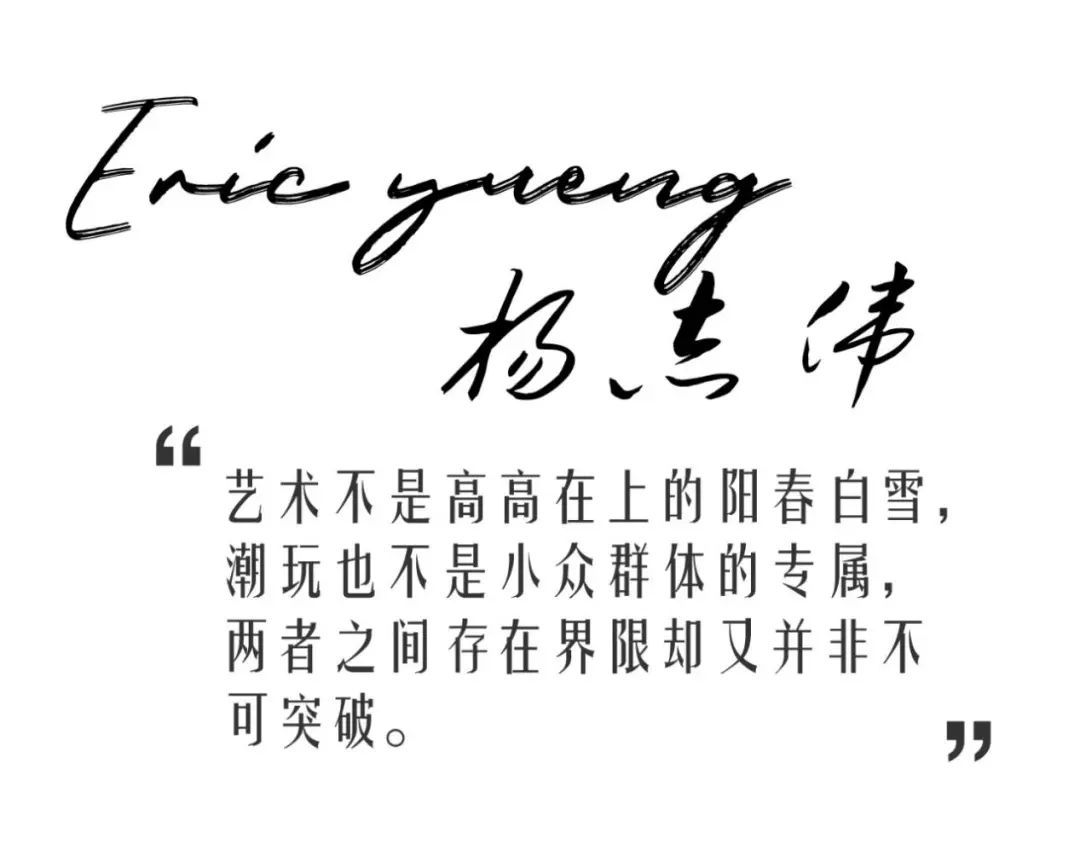 Eric yueng
杨志伟
“艺术不是高高在上的阳春白雪，
潮玩也不是小众群体的专属，
两者之间存在界限却又并非不
可突破。”